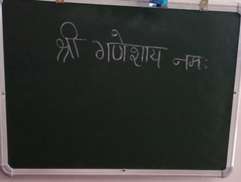 श्री गणेशाय नमः